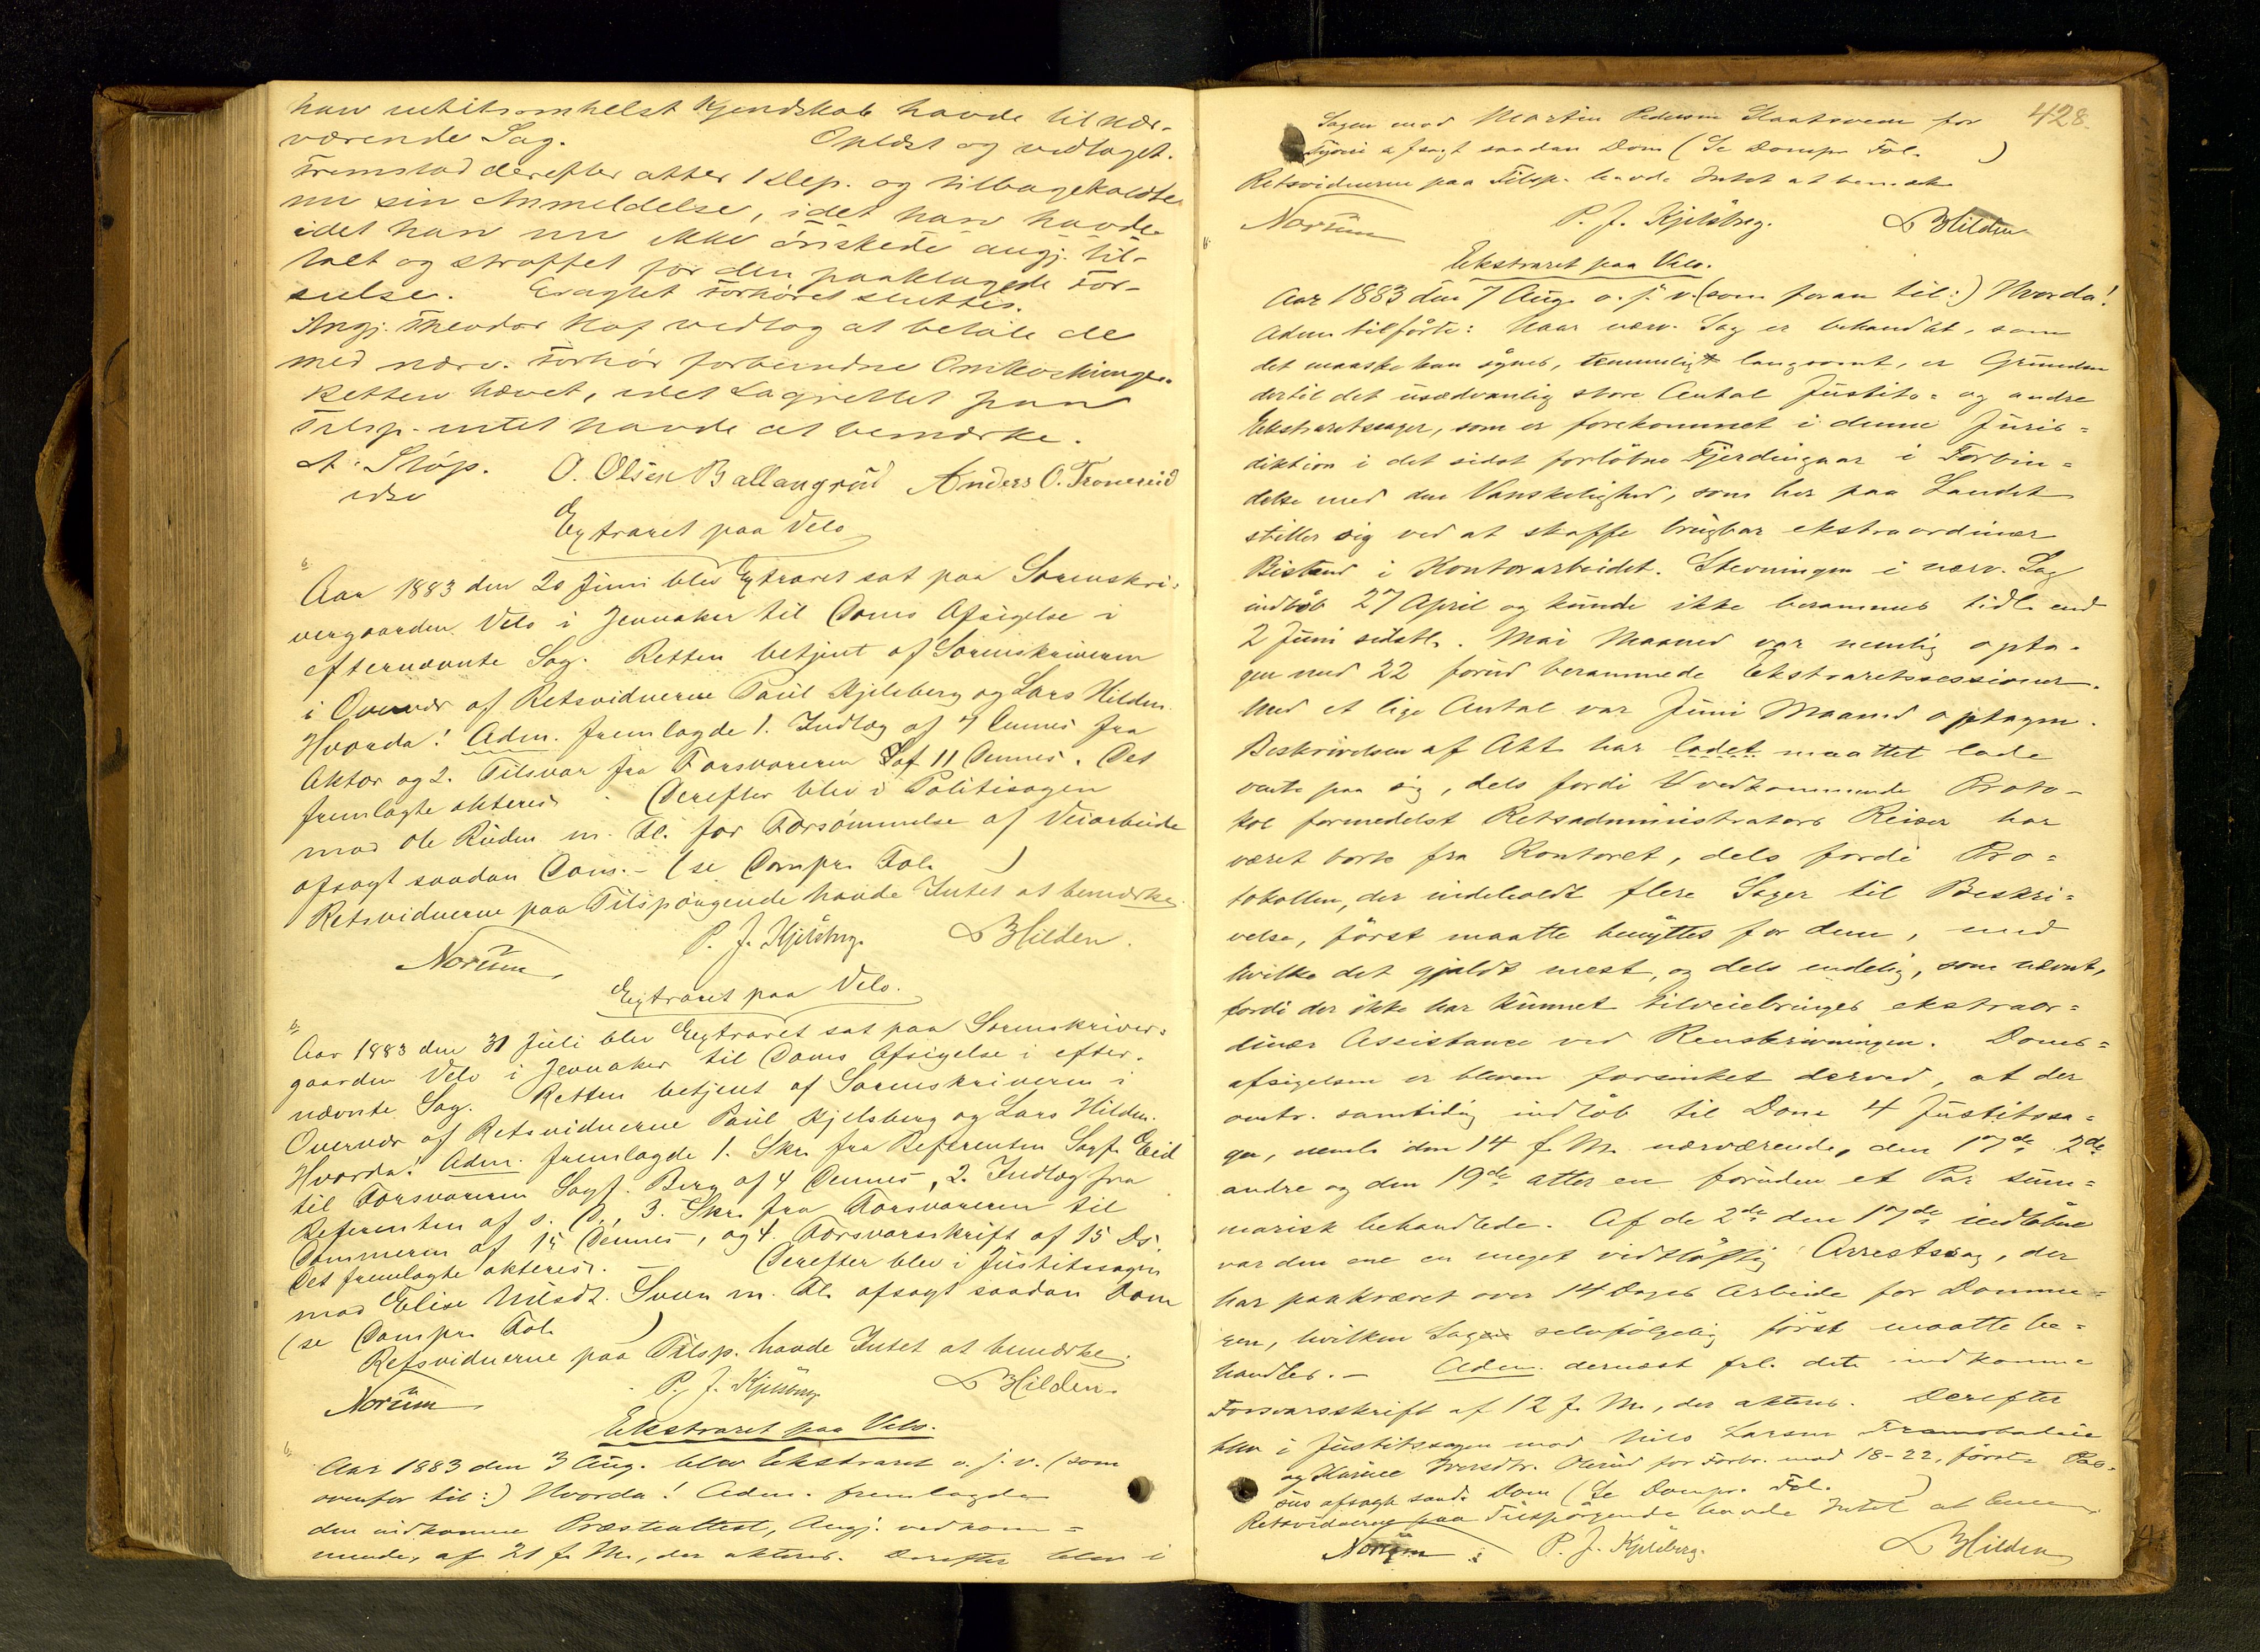 han intetsomhelst Kjendskab havde til nær-
værende Sag. Oplæst og vedtaget.
Fremstod derefter atter 1 Dep. og tilbagekaldte
nu sin Anmeldelse, idet han havde
idet han nu ikke ønskede angj. til-
talt og straffet for den paaklagede For-
seelse. Eragtet Forhøret sluttes.
Angj. Theodor Hof vedtog at betale de
med nærv. Forhør forbundne Omkostninger.
Retten hævet, idet Lagrettet paa
Tilsp. intet havde at bemærke.
A. Støp. O. Olsen Ballangrud Anders O. Tronerud
edsv
Extraret paa Velo
Aar 1883 den 20 Juni blev Extraret sat paa Sorenskri-
vergaarden Velo i Jevnaker til Doms Afsigelse i
efternævnte Sag. Retten betjent af Sorenskriveren
i Overvær af Retsvidnerne Paul Kjelsberg og Lars Hilden.
Hvorda! Adm. fremlagde 1. Indlæg af 7 dennes fra
Aktor og 2. Tilsvar fra Forsvareren af 11 dennes. Det
fremlagte akteres. Derefter blev i Politisagen
mod Ole Ruden m. Fl. for Forsømmelse af Veiarbeide
afsagt saadan Dom. - (se Dompr. Fol. )
Retsvidnerne paa Tilspørgende havde Intet at bemærke.
Norum. P. J. Kjelsberg. L Hilden.
Extraret paa Velo.
Aar 1883 den 31 Juli blev Extraret sat paa Sorenskriver-
gaarden Velo i Jevnaker til Doms Afsigelse i efter-
nævnte Sag. Retten betjent af Sorenskriveren i
Overvær af Retsvidnerne Paul Kjelsberg og Lars Hilden.
Hvorda! Adm. fremlagde 1. Skr. fra Referenten Sagf. Eid
til Forsvareren Sagf. Berg af 4 dennes, 2. Indlæg fra
Referenten af s. D., 3. Skr. fra Forsvareren til
Dommeren af 15 dennes, og 4. Forsvarsskrift af 15 Ds.
Det fremlagte akteres. - Derefter blev i Justitssagen
mod Elise Nilsdt. Sveen m. Fl. afsagt saadan Dom
(se Dompr. Fol. )
Retsvidnerne paa Tilsp. havde Intet at bemærke.
Norum. P. J. Kjelsberg. L Hilden.
Ekstraret paa Velo.
Aar 1883 den 3 Aug. blev Ekstraret o. s. v. (som
ovenfor til:) Hvorda! Adm. fremlagde
den indkomne Præsteattest, Angj. vedkom-
mende, af 21 f. M., der akteres. Derefter blev i
428.
Sagen mod Martin Pedersen for
Tyveri afsagt saadan Dom (Se Dompr. Fol. )
Retsvidnerne paa Tilsp. havde Intet at bemærke
Norum P. J. Kjelsberg. L Hilden
Ekstraret paa Velo.
Aar 1883 den 7 Aug. o. s. v. (som foran til:) Hvorda!
Adm. tilførte: Naar nærv. Sag er behandlet, som
det maaske kan synes, temmeligt langsomt, er Grunden
dertil det usædvanlig store Antal Justits- og andre
Ekstraretssager, som er forekommet i denne Juris-
diktion i det sidst forløbne Fjerdingaar i Forbin-
delse med den Vanskelighed, som her paa Landet
stiller sig ved at skaffe brugbar ekstraordinær
Bistand i Kontorarbeidet. Stevningen i nærv. Sag
indløb 27 April og kunde ikke berammes tidl. end
2 Juni sidstl. Mai Maaned var nemlig opta-
gen med 22 forud berammede Ekstraretssessioner.
Med et lige Antal var Juni Maaned optagen.
Beskrivelsen af Akt. har ladet maattet lade
vente paa sig, dels fordi Vedkommende Proto-
kol formedelst Retsadministrators Reiser har
været borte fra Kontoret, dels fordi Pro-
tokollen, der indeholdt flere Sager til Beskri-
velse, først maatte benyttes for dem, med
hvilke det gjaldt mest, og dels endelig, som nævnt,
fordi der ikke har kunnet tilveiebringes ekstraor-
dinær Assistance ved Renskrivningen. Doms-
afsigelsen er bleven forsinket derved, at der
omtr. samtidig indløb til Doms 4 Justitssa-
ger, nemlig den 14 f. M. nærværende, den 17de 2de
andre og den 19de atter en foruden et Par sum-
marisk behandlede. Af de 2de den 17de indløbne
var den ene en meget vidtløftig Arrestsag, der
har paakrævet over 14 Dages Arbeide for Domme-
ren, hvilken Sag selvfølgelig først maatte be-
handles. - Adm. dernæst frl. det indkomne
Forsvarsskrift af 12 f. M., der akteres. Derefter
blev i Justitssagen mod Nils Larsen
og Iversdtr. Olerud for Forbr. mod 18-22, første Pas-
sus afsagt saad. Dom (Se Dompr. Fol. )
Retsvidnerne paa Tilspørgende havde Intet at bem.
Norum P. J. Kjelsberg. L Hilden